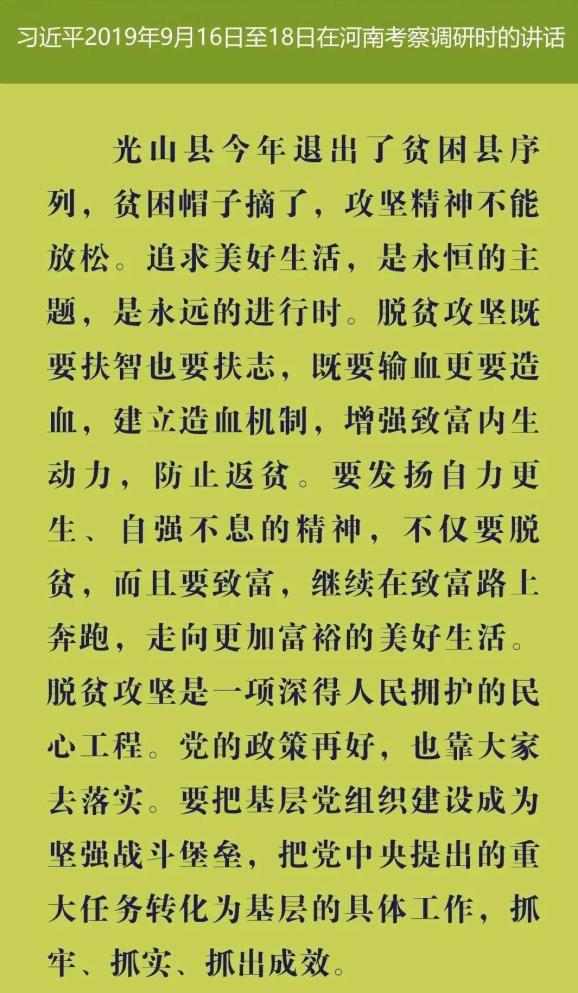 习近平2019年9月16日至18日在河南考察调研时的讲话
光山县今年退出了贫困县序
列，贫困帽子摘了，攻坚精神不能
放松。追求美好生活，是永恒的主
题，是永远的进行时。脱贫攻坚既
要扶智也要扶志，既要输血更要造
血，建立造血机制，增强致富内生
动力，防止返贫。要发扬自力更
生、自强不息的精神，不仅要脱
贫，而且要致富，继续在致富路上
奔跑，走向更加富裕的美好生活。
脱贫攻坚是一项深得人民拥护的民
心工程。党的政策再好，也靠大家
去落实。要把基层党组织建设成为
坚强战斗堡垒，把党中央提出的重
大任务转化为基层的具体工作，抓
牢、抓实、抓出成效。